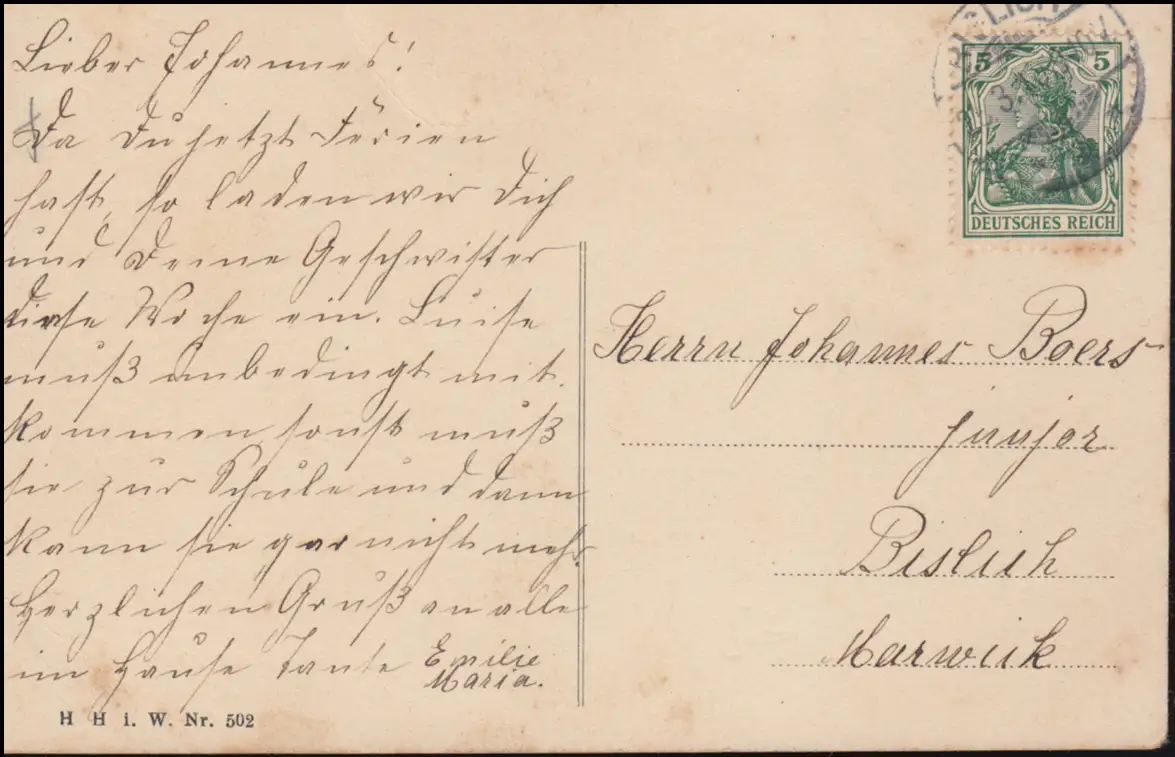 Lieber Johannes!
Da Du jetzt Ferien
hast, so laden wir Dich
und Deine Geschwister
diese Woche ein. Luise
muß unbedingt mit-
kommen, sonst muß
sie zur Schule und dann
kann sie gar nicht mehr.
Herzlichen Gruß an alle
im Hause Tante Emilie
Maria.
H H i. W. Nr. 502
BISLICH
5 5
DEUTSCHES REICH
Herrn Johannes Boers
junjor
Bislich
Marwick